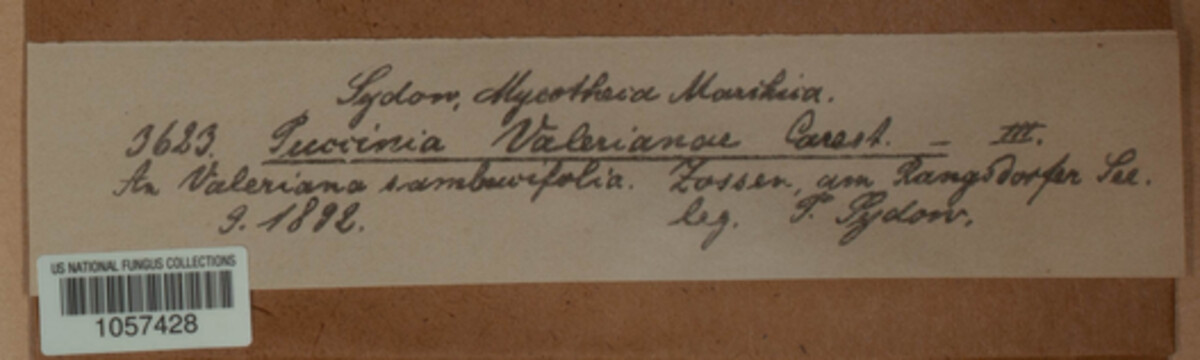 Sydow, Mycotheca Marchica.
3623. Puccinia Valerianae Carest. – III.
An Valeriana sambucifolia. Zossen, am Rangsdorfer See.
9. 1892. leg. P. Sydow.
US NATIONAL FUNGUS COLLECTIONS
1057428